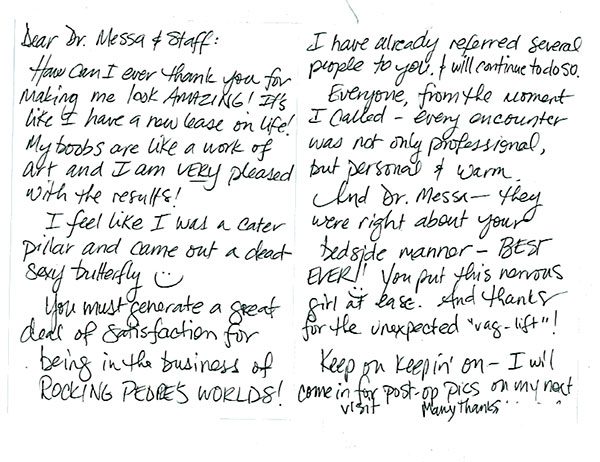 Dear Dr. Messa & Staff:
How Can I ever thank you for
making me look AMAZING! It's
like I have a new lease on life!
My boobs are like a work of
art and I am VERY pleased
with the results!
I feel like I was a cater
pillar and came out a dead
sexy butterfly
You must generate a great
deal of satisfaction for
being in the business of
ROCKING PEOPLE'S WORLDS!
I have already referred several
people to you, & will continue to do so.
Everyone, from the moment
I called - every encounter
was not only professional,
but personal & warm.
And Dr. Messa - they
were right about your
bedside manner - BEST
EVER!! You put this nervous
girl at ease. And thanks
for the unexpected "vag-lift"!
Keep on Keepin' on - I will
come in for post-op pics on my next
visit Many Thanks